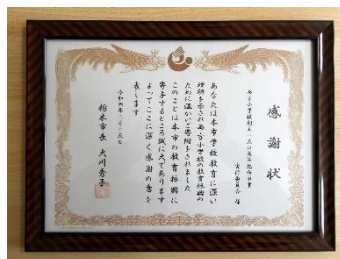 感謝状
実行委員会 様
あなたは本市学校教育に深い
理解を示され西方小学校の教育振興の
ために温かいご寄附をされました
このことは本市の教育振興に
寄与するところ誠に大であります
よってここに深く感謝の意を
表します
栃木市長 大川秀子